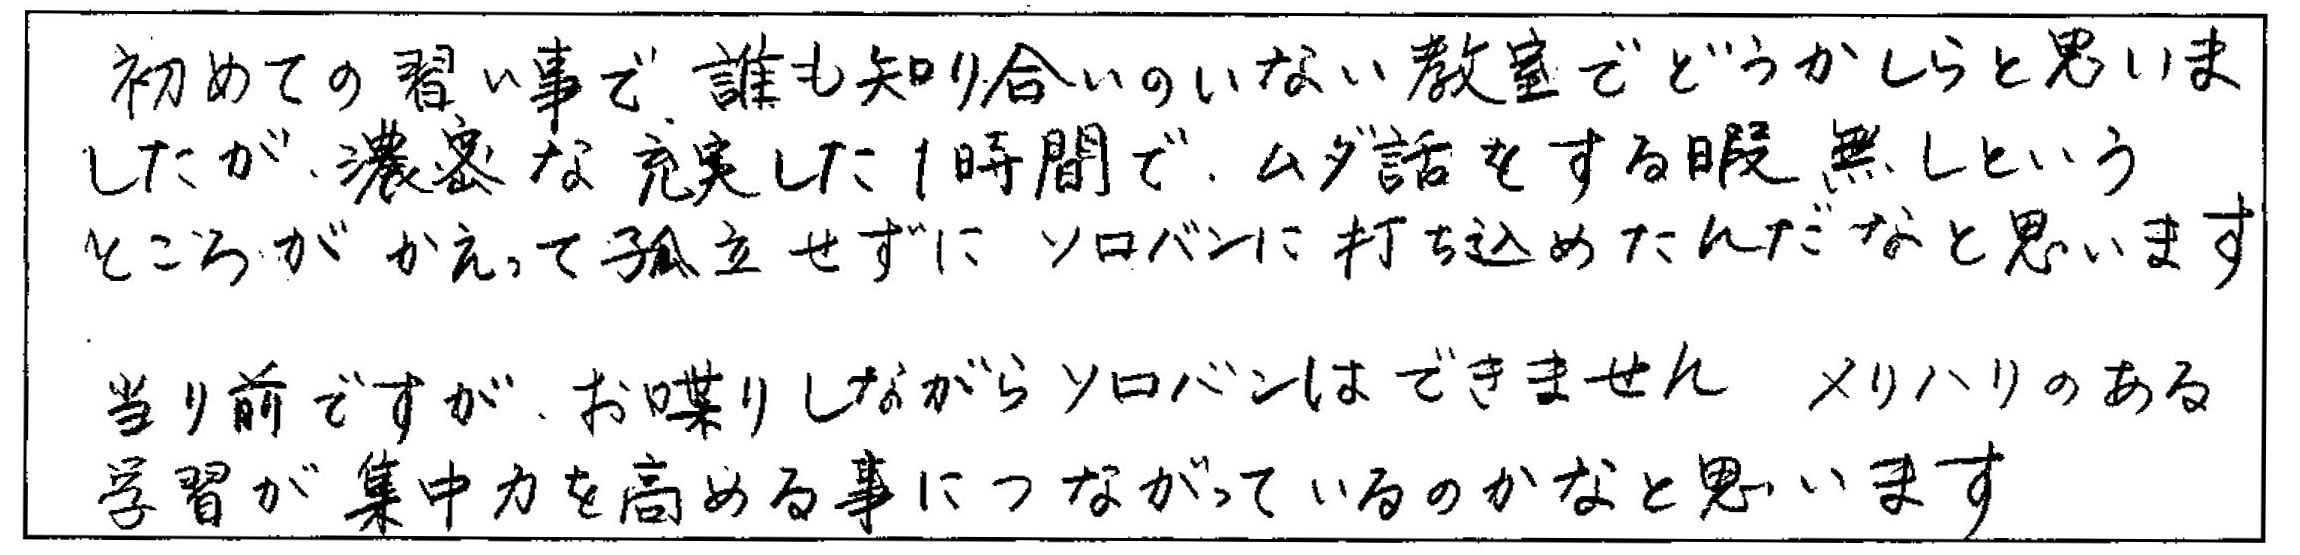 初めての習い事で、誰も知り合いのいない教室でどうかしらと思いま
したが、濃密な充実した1時間で、ムダ話をする暇無しという
ところがかえって孤立せずにソロバンに打ち込めたんだなと思います
当り前ですが、お喋りしながらソロバンはできません メリハリのある
学習が集中力を高める事につながっているのかなと思います